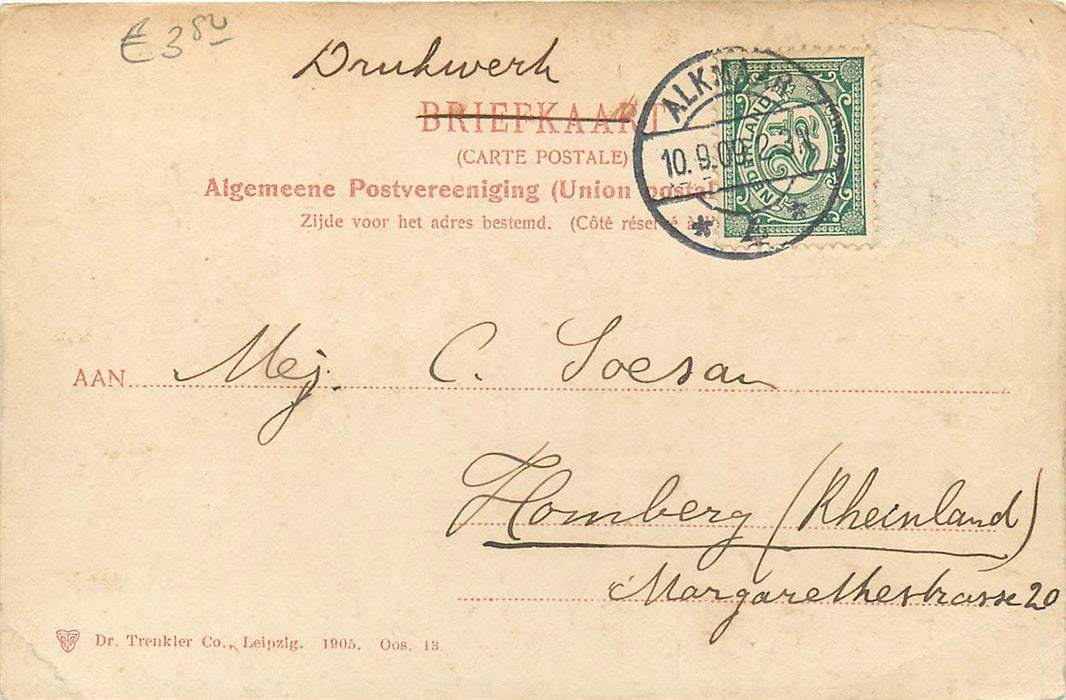 € 3 50
Drukwerk
BRIEFKAART
(CARTE POSTALE)
Algemeene Postvereeniging (Union postal
Zijde voor het adres bestemd. (Côté réservé à
ALKMAAR
10.9.09
4
NEDERLAND
2½
AAN Mej. C. Soesan
Homberg (Rheinland)
Margarethestrasse 20
Dr. Trenkler Co., Leipzig. 1905. Oos. 13.